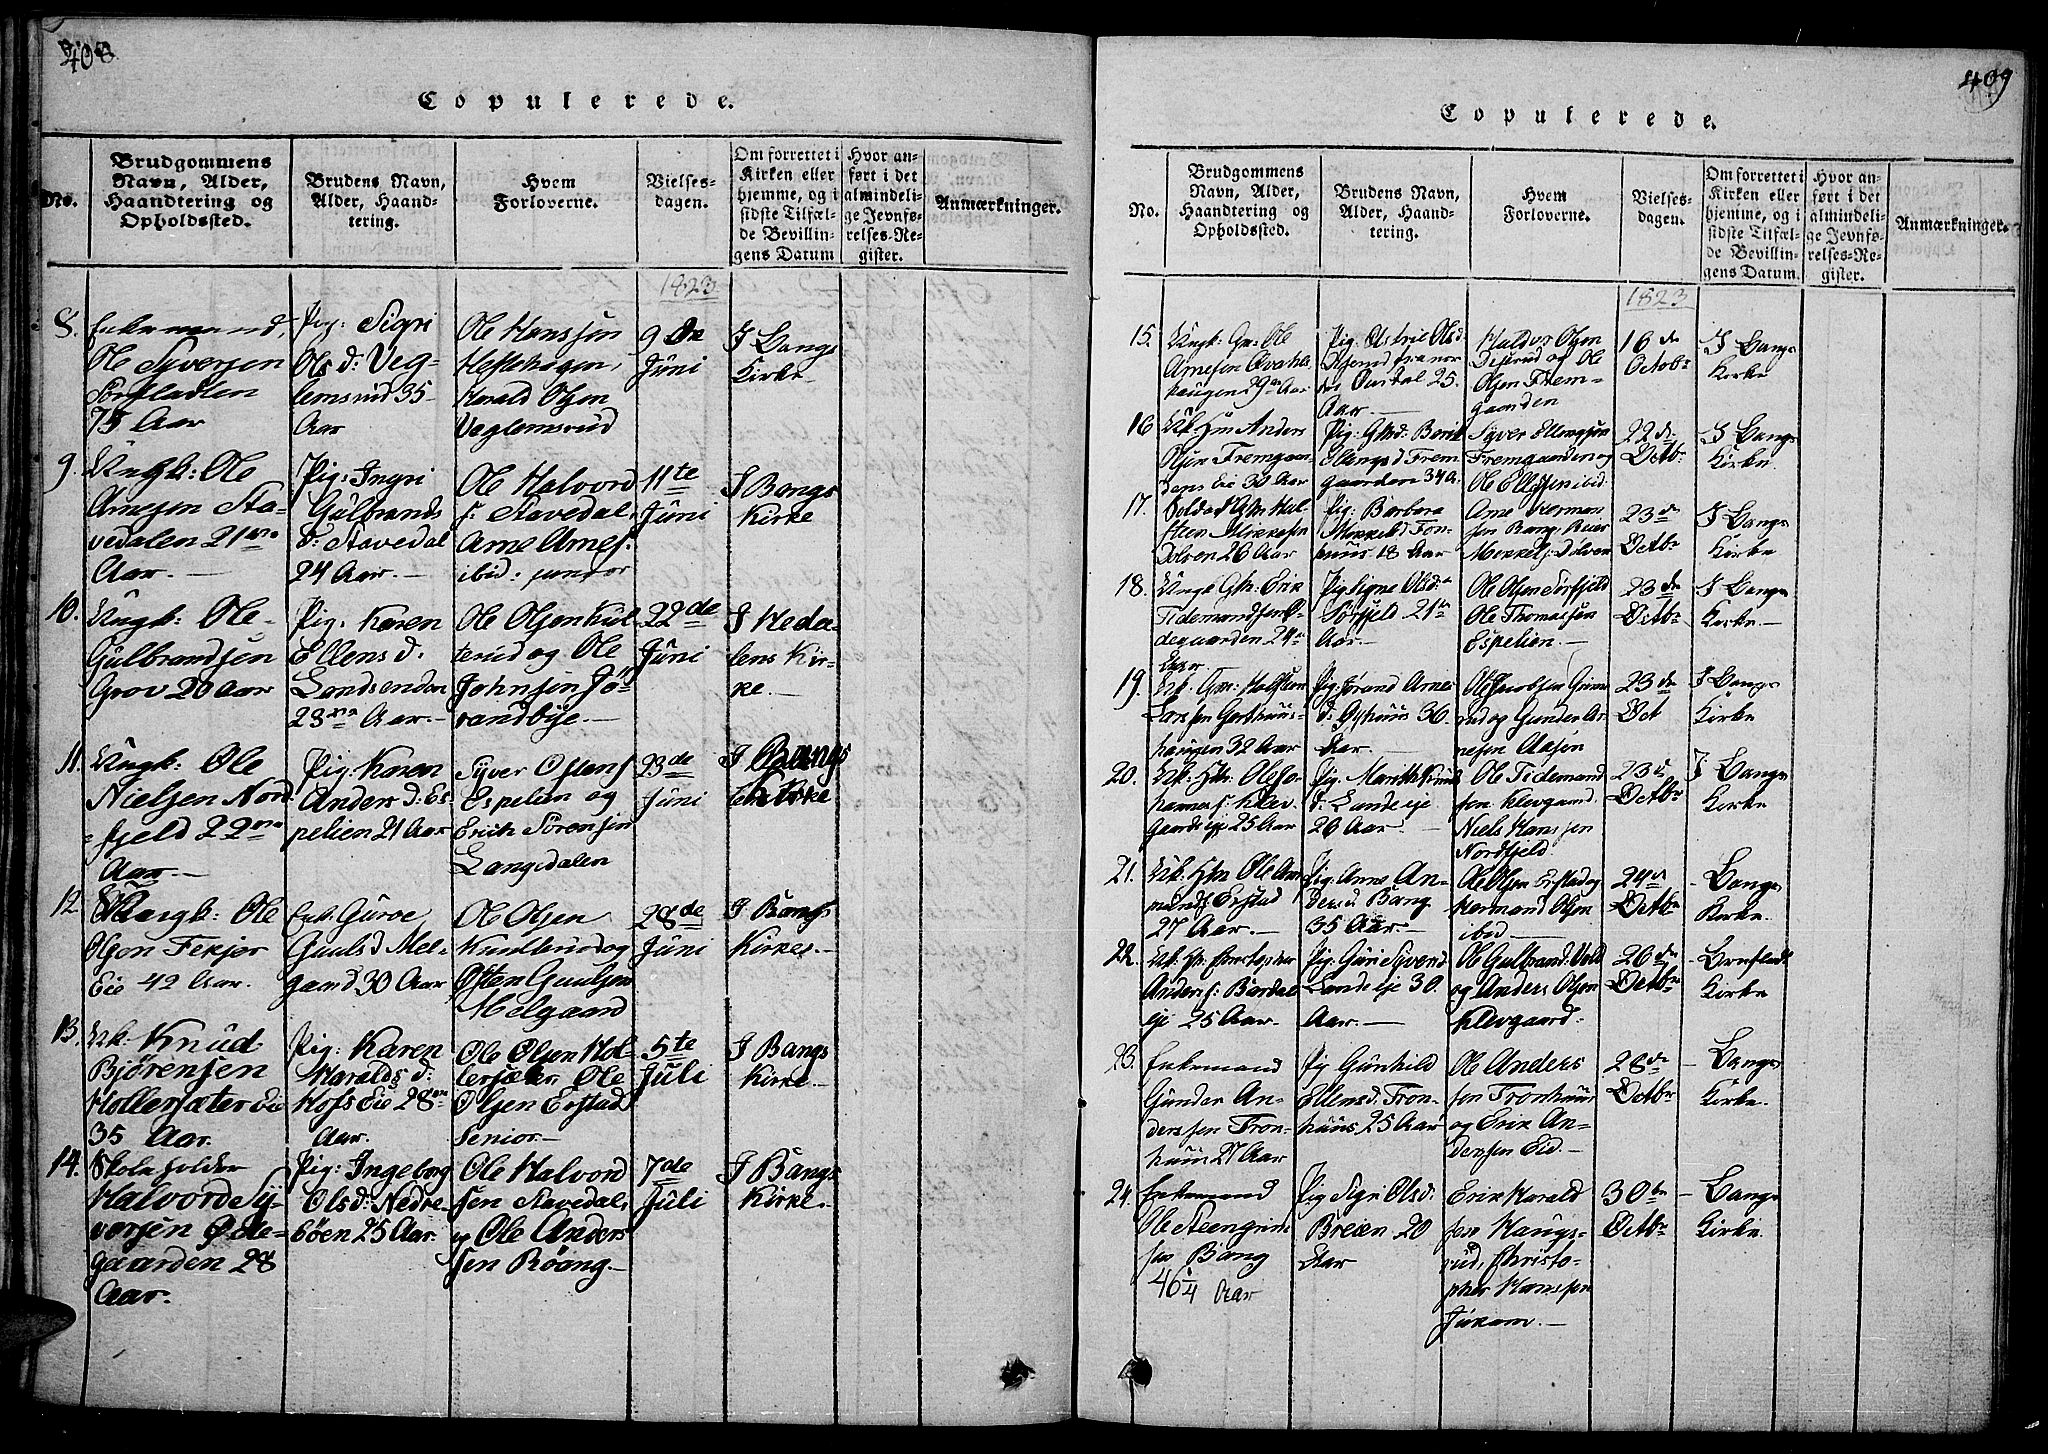 408
Copulerede.
No.
Brudgommens
Navn, Alder,
Haandtering og
Opholdssted.
Brudens Navn,
Alder, Haand-
tering.
Hvem
Forloverne.
Vielses-
dagen.
Om forrettet i
Kirken eller
hjemme, og i
sidste Tilfæl-
de Bevillin-
gens Datum
Hvor an-
ført i det
almindeli-
ge Jevnfø-
relses-Re-
gister.
Anmærkninger.
1823
8.
Enkemand,
Ole Syversen
Sørfladten
75 Aar
Pig: Sigri
Ols d: Veg-
lemsrud 35
Aar
Ole Hanssen
Heftehagen,
Harald Olsen
Veglemsrud
9 de
Juni
I Bangs
Kirke
9.
Ungk: Ole
Arnesen Sta-
vedalen 21
Aar.
Pig: Ingri
Gulbrands
d: Stavedal
24 Aar.
Ole Halvord
s: Stavedal,
Arne Arnes:
ibid: junior
11te
Juni
I Bangs
Kirke
10.
Ungk: Ole
Gulbrandsen
Grov 20 Aar
Pig: Karen
Ellens d:
Landsenden
23 Aar.
Ole Olsen Kul-
terud og Ole
Johnsen Jö-
randbye.
22de
Juni
I Heda-
lens Kir-
ke.
11.
Ungk: Ole
Nielsen Nord
fjeld 22
Aar.
Pig: Karen
Anders d: Es-
pelien 21 Aar
Syver Ostens
Espelien og
Erich Sörensen
Langedalen
23de
Juni
I Bangs
Kirke
12.
Ungk: Ole
Olsen Fekjor
Eie 42 Aar.
Enk: Guroe
Guuls d Mel-
gaard 30 Aar
Ole Olsen
og
Osten Guulsen
Melgaard
28de
Juni
I Bangs
Kirke.
13.
Uk. Knud
Bjørensen
Hollersæter Eie
35 Aar.
Pig: Karen
Haralds d:
Hofs Eie 28
Aar.
Ole Olsen Hol-
lersæter, Ole
Olsen Erstad
Senior.
5te
Juli
I Bangs
Kirke.
14.
Skoleholder
Halvord Sy-
versen Øde-
gaarden 28
Aar.
Pig: Ingeborg
Ols d: Nedre-
böen 25 Aar.
Ole Halvord
sen Stavedal,
og Ole Anders
sen Röang.
7de
Juli
I Bangs
Kirke.
409
Copulerede.
No.
Brudgommens
Navn, Alder,
Haandtering og
Opholdssted.
Brudens Navn,
Alder, Haand-
tering.
Hvem
Forloverne.
Vielses-
dagen.
Om forrettet i
Kirken eller
hjemme, og i
sidste Tilfæl-
de Bevillin-
gens Datum.
Hvor an-
ført i det
almindeli-
ge Jevnfø-
relses-Re-
gister.
Anmærkninger.
1823
15.
Ungk: Ole
Arnesen
haugen 29 Aar
Pig: Astrie Ols d
25.
Aar
Haldor Olsen
og Ole
Olsen Frem-
gaarden
16 de
Octobr
I Bangs
Kirke
16
Anders
Olsen Fremgaar-
dens Eie 30 Aar
Pig: Berit
Ellengs d Frem
gaarden 34 A.
Syver Ellengsen
Fremgaarden og
Ole Ellefsen ibid.
22 de
Octb:
I Bangs
Kirke.
17.
Soldat Hol-
sten Mikkelsen
Dölven 26 Aar
Pig: Barbara
Mikkels d Fon-
huus 18 Aar
Arne Herman
sen Bang,
Mikkels: Dölven
23 de
Octbr
I Bangs
Kirke.
18.
Ungk Erik
Tidemandsen Ö-
degaarden 24
Aar.
Pig Signe Ols d:
Sørfjeld 21
Aar.
Ole Olsen Sørfjeld
Ole Thomassen
Espelien.
23 de
Octbr
I Bangs
Kirke.
19.
Uk. Holsteen
Larsen
haugen 32 Aar
Pig: Jørand Arnes
d: 30.
Aar.
Ole Jacobsen
og Gunder Ar-
nesen Aasen
23 de
Oct
I Bangs
Kirke
20.
Uk. Ole Jo-
hannes s: Klev-
gaards eje 25 Aar
Pig: Marithe Knuds
d: Lands eje
26 Aar.
Ole Tidemand
sen Klevgaard.
Niels Hanssen
Nordfjeld.
23 d
Octbr
I Bangs
Kirke
21.
Uk. Ole
Erstad
27 Aar.
Pig: Anne An-
ders d Bang
35 Aar
Ole Olsen Erstad og
Hermand Olsen
ibid
24 d
Octbr
- Bangs
Kirke.
22.
Uk. Christopher
Anders s: Bardal
eje 25 Aar.
Pig: Guri Syvers d
Lands eje 30.
Aar.
Ole Gulbrand: Vold
og Anders Olsen
Klevgaard.
26 de
Octbr
-
Kirke
23.
Enkemand
Gunder An-
derssen Fron-
huus 27 Aar
Pig Gunhild
Ellens d. Fron-
huus. 25 Aar
Ole Anders
sen Fronhuus
og Erik An-
derssen Eid.
28 de
Octbr
- Bangs
Kirke.
24.
Enkemand
Ole Steengrim
sen Bang
46 1/4 Aar
Pig Sigri Ols d:
Breien 20
Aar
Erik Harald
sen Haugs-
rud, Christo-
pher Hanssen
Jukam.
30 te
Octbr
- Bangs
Kirke.